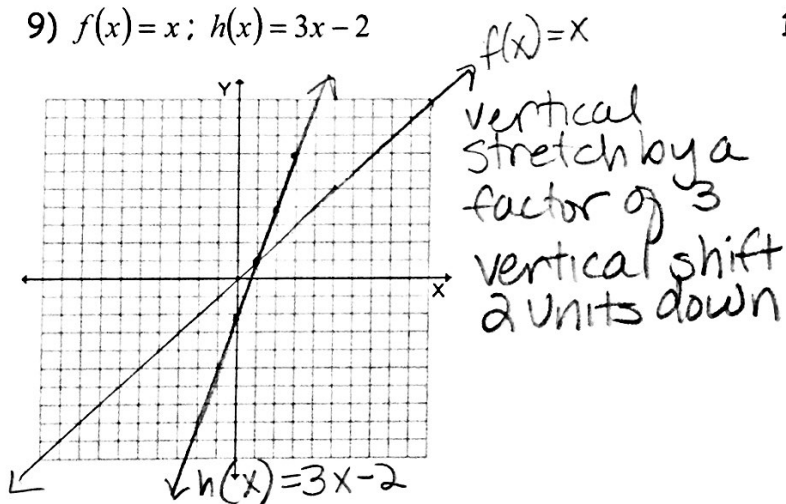 9) f(x) = x ; h(x) = 3x – 2
f(x)=x
Y
vertical
stretch by a
factor of 3
vertical shift
2 units down
X
h(x)=3x-2